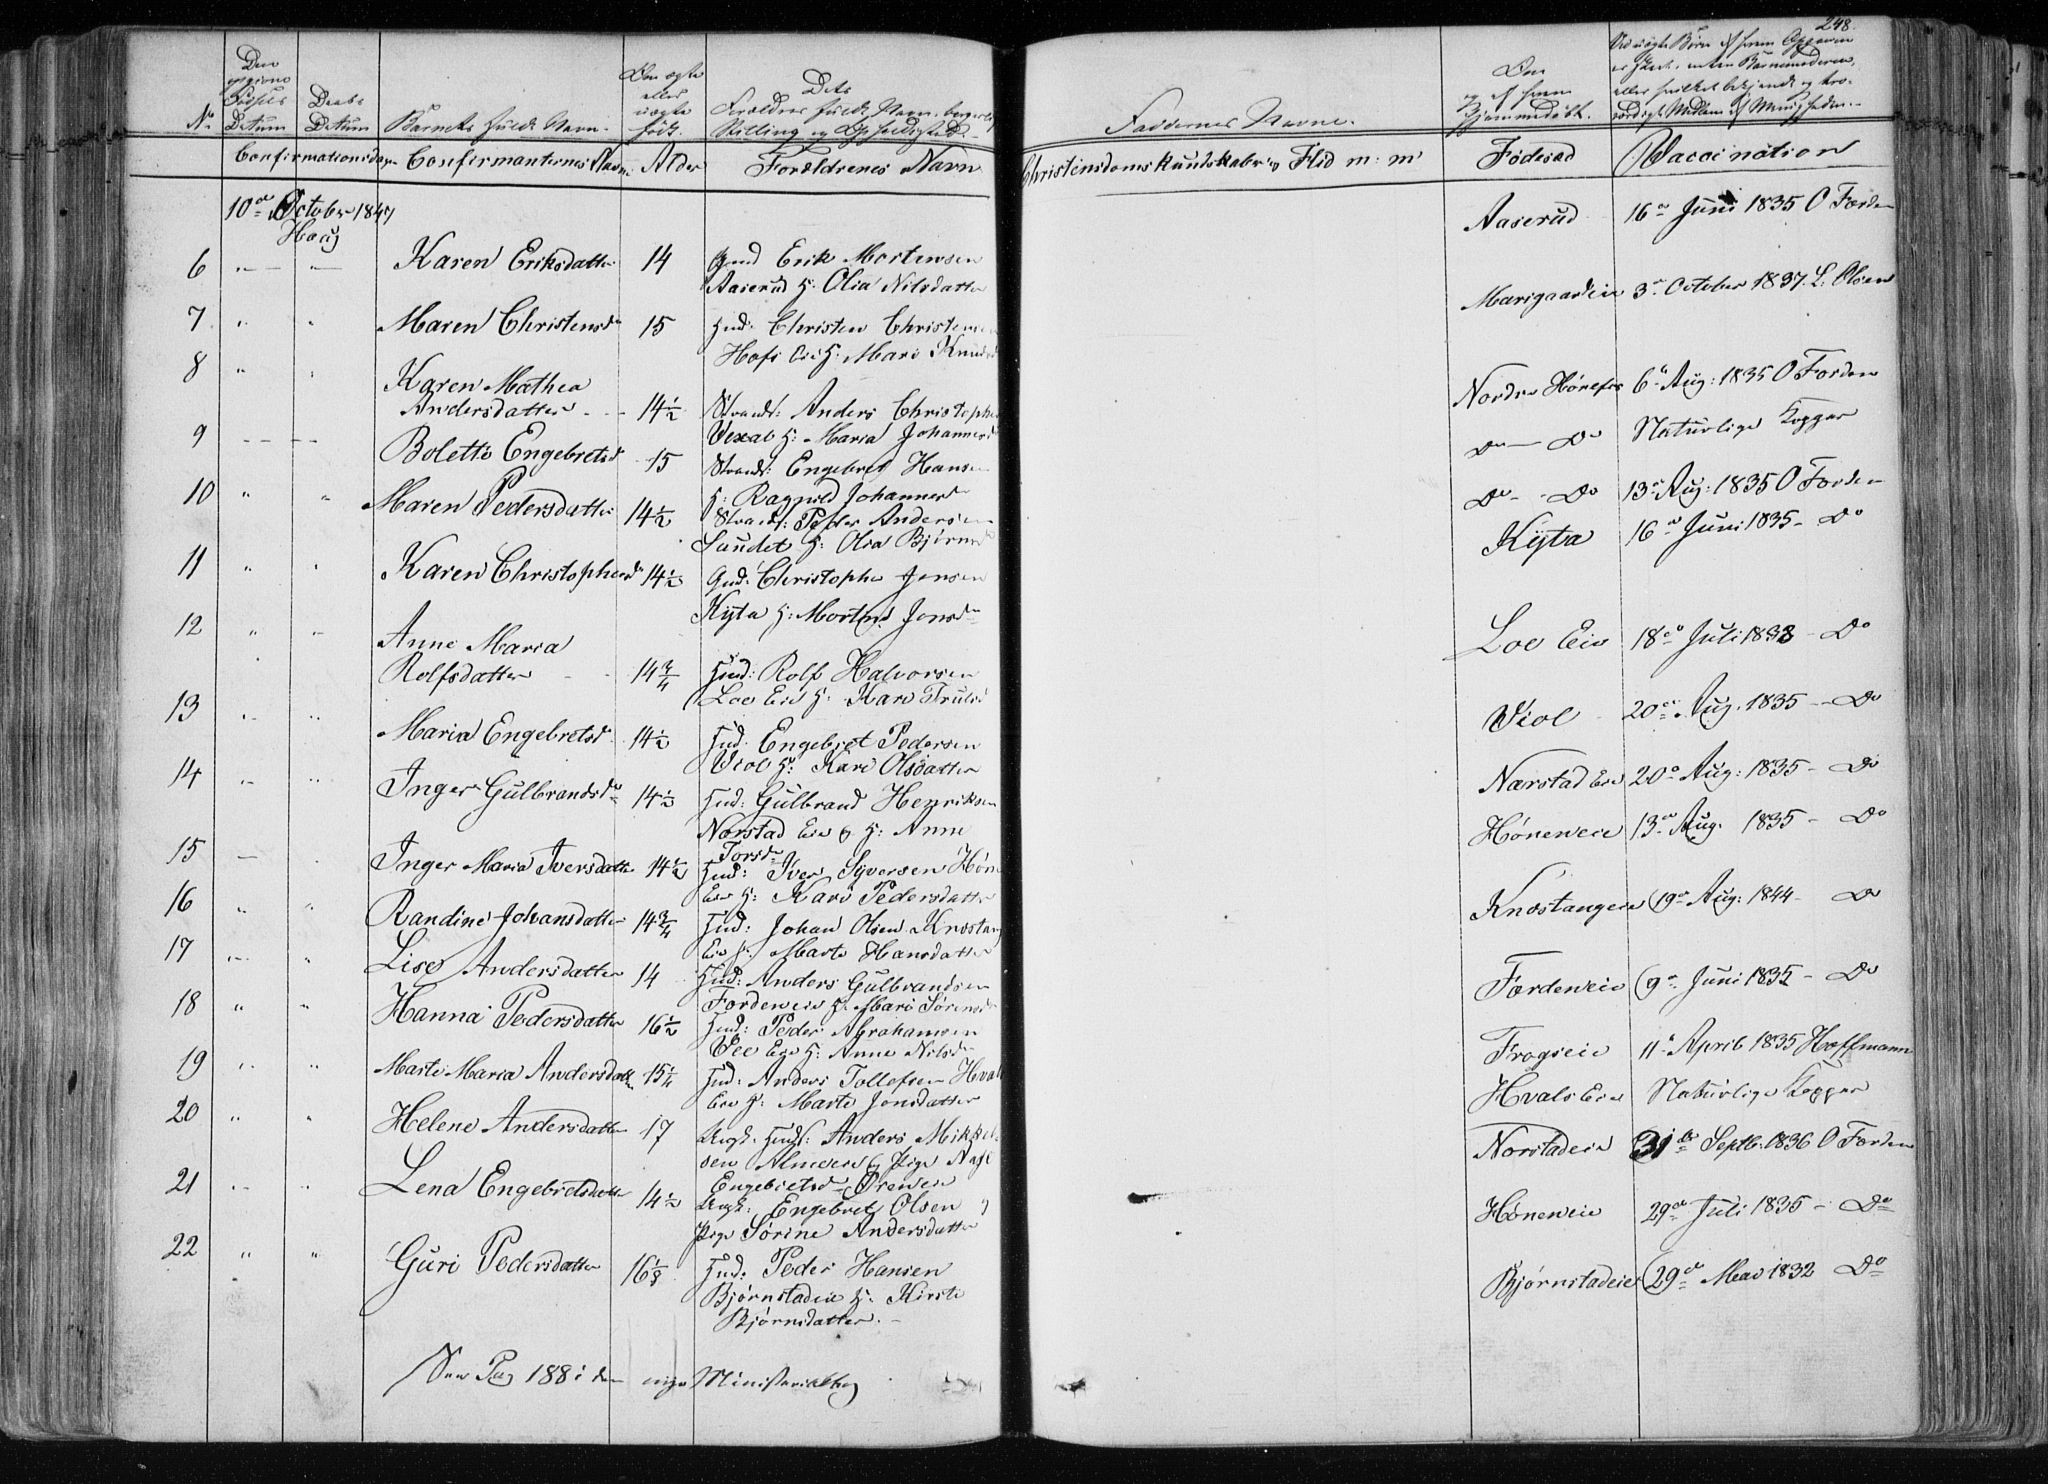 248.
No
Datum
Daabs
Datum
Barnets fulde Navn.
Om ægte
eller
uægte
født.
Dets
Faddernes Navne.
Om
og af hvem
Hjemmedøbt.
Confirmationsdag Confirmanternes Navn Alder Forældrenes Navn Christendomskundskaber og Flid m: m: Fødested Vaccination
10de October 1847
Houg
6 Karen Eriksdatter 14 Gmd Erik Mortensen
Aaserud H: Olia Nilsdatter
Aaserud 16de Juni 1835 O Færden
7 Maren Christensd 15 Hmd: Christen Christensen
Hofs Eie H: Mari Knudsd
Marigaardeie 3de October 1837. L: Olsen
8 Karen Mathea
Andersdatter 14½ Strands: Anders Christophe
H: Maria Johannesd
Nordre Hønefos 6te Aug: 1835 O Færden
9 Bolette Engebretsd 15 Strands: Engebret Hansen
H: Ragnild Johannesd
Do Do Naturlige Kopper
10 Maren Pedersdatter 14½ Strands: Peder Andersen
Sundet H: Olia Bjørnsd
Do Do 13de Aug: 1835 O Færden
11 Karen Christophersd 14½ Gmd: Christopher Jensen
Kjta H: Jonsd
Kjta 16de Juni 1835 Do
12 Anne Maria
Rolfsdatter 14¾ Hmd: Rolf Halvorsen
Loe Eie H: Kari Trulsd
Loe Eie 18de Juli 1838 Do
13 Maria Engebretsd 14½ Hmd: Engebret Pedersen
Viol H: Kari Olsdatter
Viol 20de Aug. 1835 Do
14 Inger Gulbrandsd 14½ Hmd: Gulbrand Henriksen
Norstad Eie H: Anne
Torsd
Nærstad Eie 20de Aug: 1835 Do
15 Inger Maria Iversdatter 14½ Hmd: Iver Syversen Høne
Eie H: Kari Pedersdatter
Høneweie 13de Aug: 1835 Do
16 Randine Johansdatter 14¾ Hmd: Johan Olsen Knæstang
Eie H: Marte Hansdatter
Knæstangeie 19de Aug: 1844 Do
17 Lise Andersdatter 14 Hmd: Anders Gulbrandsen
Færdeneie H: Mari Sørensd
Færdeneie 9de Juni 1835 Do
18 Hanna Pedersdatter 16½ Hmd: Peder Abrahamsen
Vee Eie H: Anne Nilsd
Frogseie 11te April 1835 Hoffmann
19 Marte Maria Andersdatter 15¼ Hmd: Anders Tollefsen Hvals
Eie H: Marte Jonsdatter
Hvals Eie Naturlige Kopper
20 Helene Andersdatter 17 Ungk: Hmds: Anders Mikkel
sen Almeie og Pige
Engebretsd
Norstadeie 31te Septb: 1836 O Færden
21 Lena Engebretsdatter 14½ Ungk: Engebret Olsen
Pige Sørine Andersdatter
Høneweie 29de Juli 1835 Do
22 Guri Pedersdatter 16⅛ Hmd: Peder Hansen
Bjørnstadeie H: Kirsti
Bjørnsdatter.
Bjørnstadeie 29de Mai 1832 Do
Pag 188 i den Ministerialbog